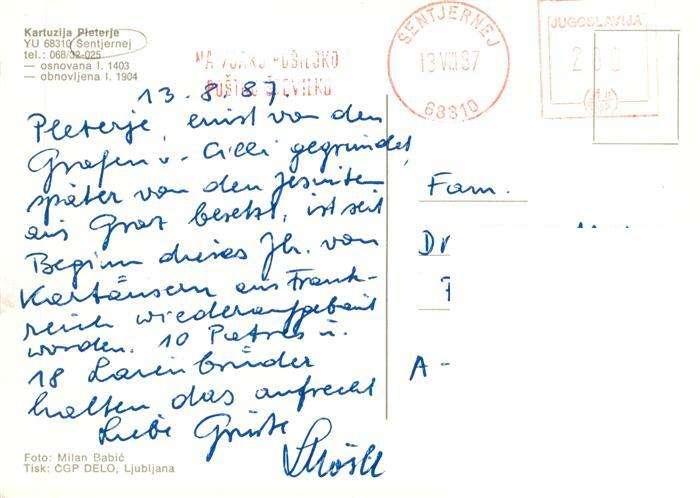 Kartuzija Pleterje
YU 68310 Šentjernej
tel.: 068/32-025
— osnovana l. 1403
— obnovljena l. 1904
NA VSAKO POŠILJKO
POŠTNO ŠTEVILKO
ŠENTJERNEJ
13 VIII 87
68310
JUGOSLAVIJA
13.8.87
Pleterje, einst von den
Grafen v. Cilli gegründet,
später von den Jesuiten
aus Graz besetzt, ist seit
Beginn dieses Jh. von
Kartäusern aus Frank-
reich wiederaufgebaut
worden. 10 Patres u.
18 Laienbrüder
halten das aufrecht
Liebe Grüße
Fam.
Dr
A -
Foto: Milan Babič
Tisk: ČGP DELO, Ljubljana